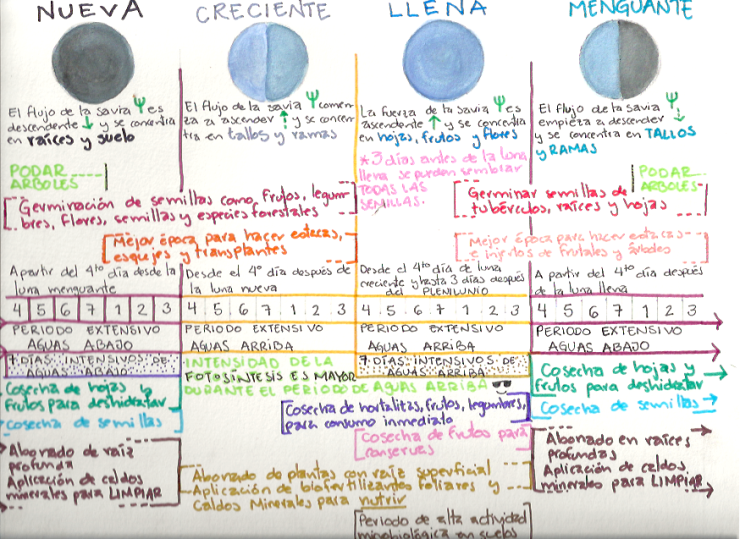 NUEVA
El flujo de la savia es
descendente y se concentra
en raíces y suelo
PODAR
ARBOLES
CRECIENTE
El flujo de la savia comien
za a ascender y se concen
tra en tallos y ramas
LLENA
La fuerza de la savia es
ascendente y se concentra
en hojas, frutos y flores
*3 días antes de la luna
llena se pueden sembrar
TODAS LAS
SEMILLAS.
MENGUANTE
El flujo de la savia
empieza a descender
y se concentra en TALLOS
y RAMAS
PODAR
ARBOLES
Germinación de semillas como, frutos, legum-
bres, flores, semillas y especies forestales
Germinar semillas de
tubérculos, raíces y hojas
Mejor época para hacer estacas,
esquejes y transplantes
Mejor época para hacer estacas
e injertos de frutales y árboles
A partir del 4to día desde la
luna menguante
Desde el 4º día después de
la luna nueva
Desde el 4º día de luna
creciente y hasta 3 días después
del PLENILUNIO
A partir del 4to día después
de la luna llena
4 5 6 7 1 2 3
4 5 6 7 1 2 3
4 5 6 7 1 2 3
4 5 6 7 1 2 3
PERIODO EXTENSIVO
AGUAS ABAJO
PERIODO EXTENSIVO
AGUAS ARRIBA
PERIODO EXTENSIVO
AGUAS ARRIBA
PERIODO EXTENSIVO
AGUAS ABAJO
7 DÍAS INTENSIVOS DE
AGUAS ABAJO
INTENSIDAD DE LA
FOTOSÍNTESIS ES MAYOR
DURANTE EL PERIODO DE AGUAS ARRIBA
7 DÍAS INTENSIVOS DE
AGUAS ARRIBA
Cosecha de hojas y
frutos para deshidratar
Cosecha de semillas
Cosecha de hojas y
frutos para deshidratar
Cosecha de semillas
Cosecha de hortalitas, frutos, legumbres,
para consumo inmediato
Cosecha de frutos para
conservas
Abonado de raíz
profunda
Aplicación de caldos
minerales para LIMPIAR
Abonado de plantas con raíz superficial
Aplicación de biofertilizantes foliares y
Caldos Minerales para nutrir
Abonado en raíces
profundas
Aplicación de caldos
minerales para LIMPIAR
Periodo de alta actividad
microbiológica en suelos